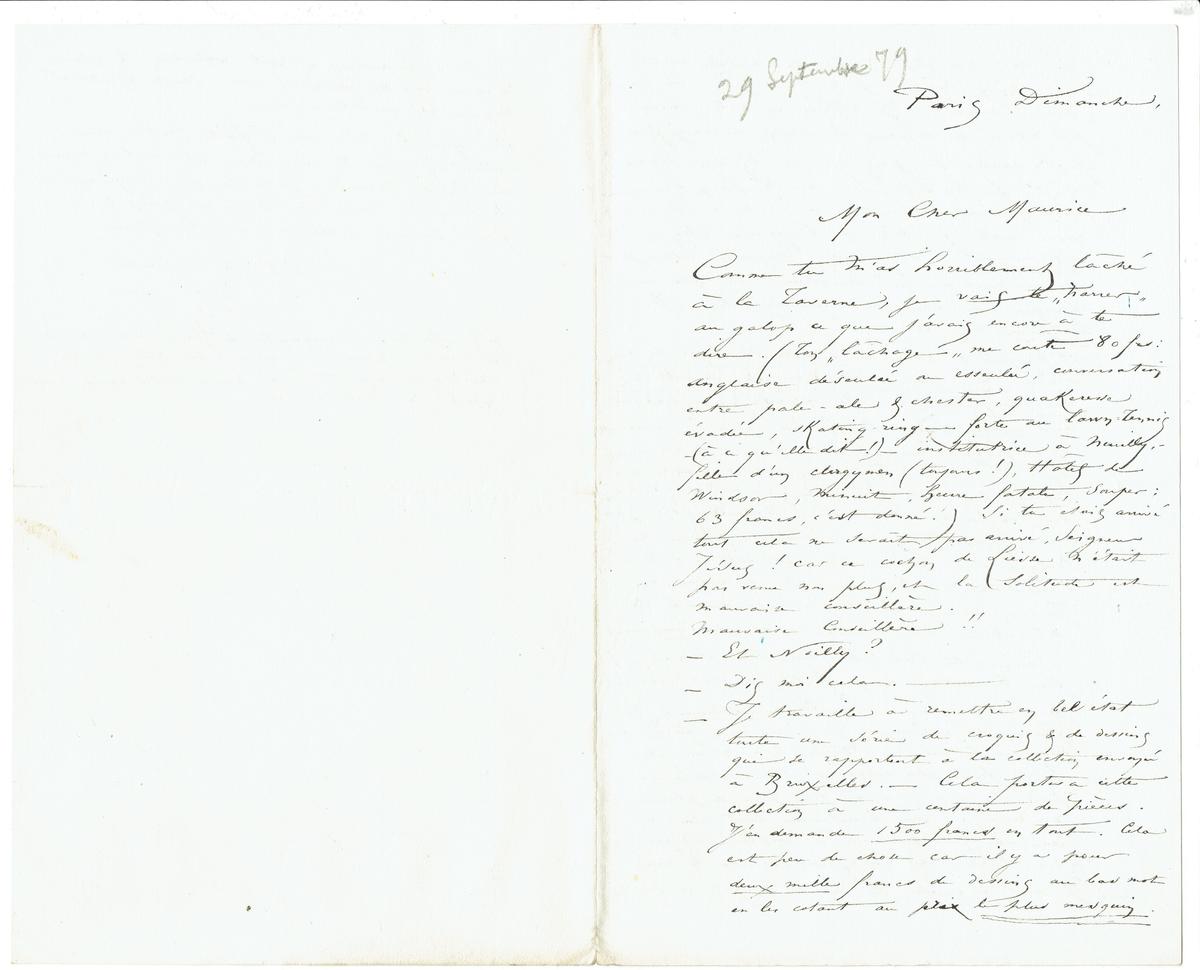 29 Septembre 79
Paris Dimanche,
Mon Cher Maurice
Comme tu m'as horriblement lâché
à la Taverne, je vais te „narrer"
au galop ce que j'avais encore à te
dire. (Ton „lâchage„ me coute 80 frs:
anglaise déseulée ou esseulée, conversation
entre pale-ale & chester, quakeresse
évadée, skating-ring — forte au lawn-tennis
-(à ce qu'elle dit!)- institutrice à Neuilly,-
fille d'un clergymen (toujours!), Hôtel de
Windsor, minuit, heure fatale, souper:
63 francs, c'est donné!) Si tu étais arrivé
tout cela ne serait pas arrivé, Seigneur
Jésus! car ce cochon de Liesse n'était
pas venu non plus, et la Solitude est
mauvaise conseillère.
Mauvaise Conseillère!!
— Et Noilly?
— Dis moi cela. —
— Je travaille à remettre en bel état
toute une série de croquis & de dessins
qui se rapportent à la collection envoyée
à Bruxelles. — Cela portera cette
collection à une centaine de pièces.
J'en demande 1500 francs en tout. Cela
est peu de chose car il y a pour
deux mille francs de dessins au bas mot
en les cotant au prix le plus mesquin.